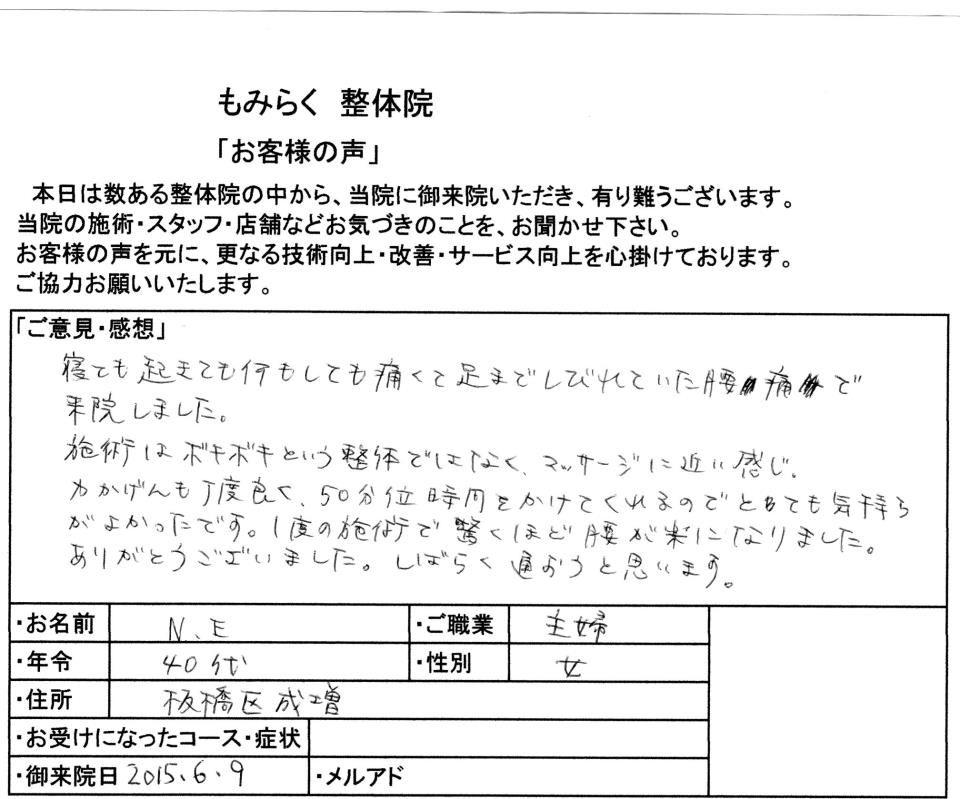 もみらく 整体院
「お客様の声」
本日は数ある整体院の中から、当院に御来院いただき、有り難うございます。
当院の施術・スタッフ・店舗などお気づきのことを、お聞かせ下さい。
お客様の声を元に、更なる技術向上・改善・サービス向上を心掛けております。
ご協力お願いいたします。
「ご意見・感想」
寝ても起きても何もしても痛くて足までしびれていた腰痛で
来院しました。
施術はボキボキという整体ではなく、マッサージに近い感じ。
力かげんも丁度良く、50分位時間をかけてくれるのでとても気持ち
がよかったです。1度の施術で驚くほど腰が楽になりました。
ありがとうございました。しばらく通おうと思います。
・お名前 N、E ・ご職業 主婦
・年令 40代 ・性別 女
・住所 板橋区成増
・お受けになったコース・症状
・御来院日 2015、6、9 ・メルアド